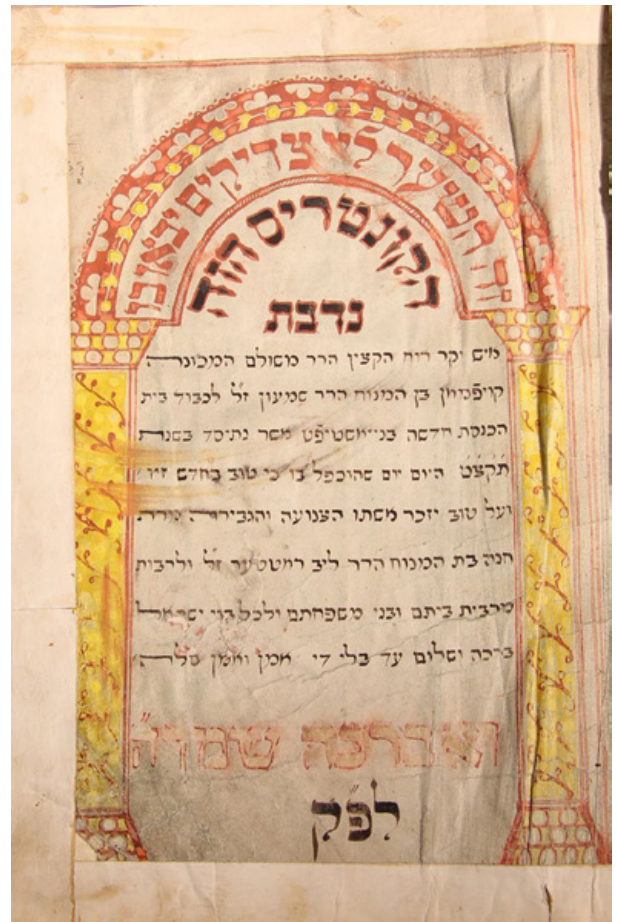 זה השער לי״י צדיקים יבאו בו
הקונטריס הזה
נדבת
יקר רוח הקצין הרר משולם המכונה
קויפמאן בן המנוח הרר שמעון ז״ל לכבוד בית
הכנסת חדשה אשר נתיסד בשנת
תקצ״ט היום יום שהוכפל בו כי טוב בחדש זיו
ועל טוב יזכר אשתו הצנועה והגבירה מרת
חנה בת המנוח הרר ליב ז״ל ולרבות
מרבית ביתם ובני משפחתם ולכל בני ישראל
ברכה ושלום עד בלי די אמן ואמן סלה
ואברכה שמך
לפ״ק